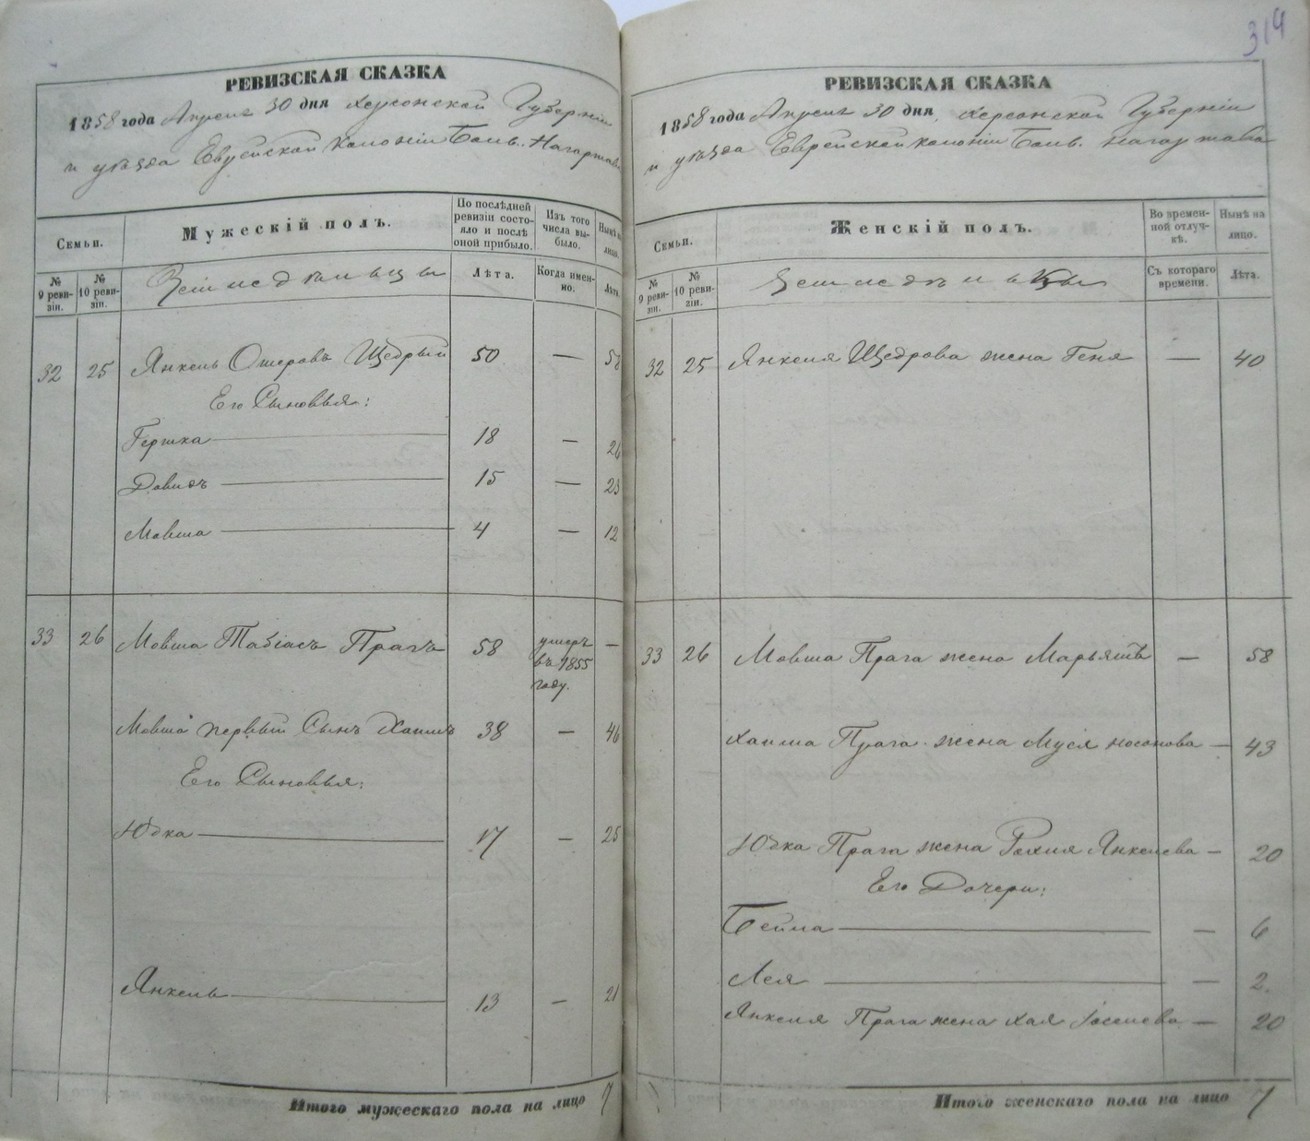 314
РЕВИЗСКАЯ СКАЗКА
1858 года Апреля 30 дня Херсонской Губернiи
и уѣзда Еврейской колонiи Больш. Нагартава
Семьи.
Мужескiй полъ.
По послѣдней ревизiи состояло и послѣ оной прибыло.
Изъ того числа выбыло.
Нынѣ на лицо.
№ 9 ревизiи.
№ 10 ревизiи.
Земледѣльцы
Лѣта.
Когда именно.
Лѣта
32 25 Янкель Ошеровъ Щедрый 50 — 58
Его Сыновья:
Гершка 18 — 26
Давидъ 15 — 23
Мовша 4 — 12
33 26 Мовша Табiасъ Прагъ 58 умеръ въ 1855 году. —
Мовша первый Сынъ Хаимъ 38 — 46
Его Сыновья:
Юдка 17 — 25
Янкель 13 — 21
Итого мужескаго пола на лицо 7
РЕВИЗСКАЯ СКАЗКА
1858 года Апреля 30 дня Херсонской Губернiи
и уѣзда Еврейской колонiи Больш. Нагартава
Семьи.
Женскiй полъ.
Во временной отлучкѣ.
Нынѣ на лицо.
№ 9 ревизiи.
№ 10 ревизiи.
Земледѣльцы
Съ котораго времени.
Лѣта.
32 25 Янкеля Щедрова жена Геня — 40
33 26 Мовша Прага жена Марьямъ — 58
Хаима Прага жена Муся Носонова — 43
Юдка Прага жена Рахиля Янкелева — 20
Его Дочери:
Бейла — 6
Лея — 2.
Янкеля Прага жена Хая Iоселева — 20
Итого женскаго пола на лицо 7